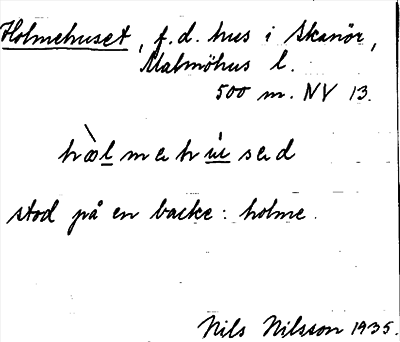 Holmehuset, f.d. hus i Skanör,
Malmöhus l.
500 m. NV 13.
stod på en backe: holme.
Nils Nilsson 1935.